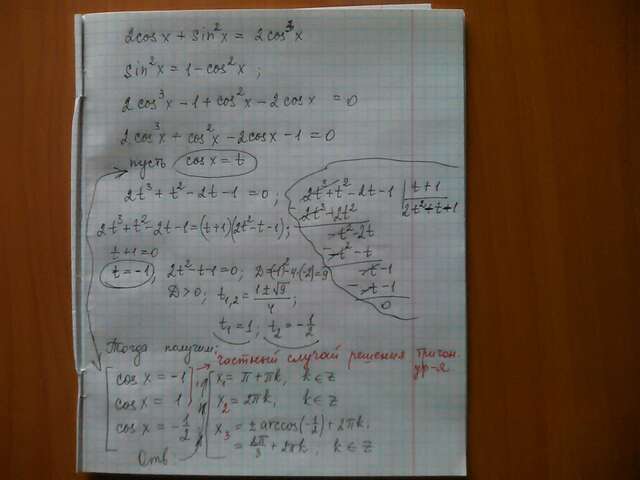 2cosx + sin²x = 2cos³x
sin²x = 1 - cos²x ;
2cos³x - 1 + cos²x - 2cosx = 0
2cos³x + cos²x - 2cosx - 1 = 0
пусть cosx = t
2t³ + t² - 2t - 1 = 0 ;
2t³ + t² - 2t - 1 = (t+1)(2t² - t - 1) ;
t + 1 = 0
t = -1, 2t² - t - 1 = 0; D = (-1)² - 4·(-2) = 9
D > 0; t₁,₂ = (1 ± √9)/4 ;
t₁ = 1 ; t₂ = -1/2
2t³ + t² - 2t - 1 | t + 1
2t³ + 2t² 2t² - t - 1
- t² - 2t
- t² - t
- t - 1
- t - 1
0
Тогда получим:
частный случай решения тригон. ур-я
cos x = -1 x₁ = π + πk, k ∈ Z
cos x = 1 x₂ = 2πk, k ∈ Z
cos x = -1/2 x₃ = ± arccos(-1/2) + 2πk;
= 2π/3 + 2πk, k ∈ Z
Отв